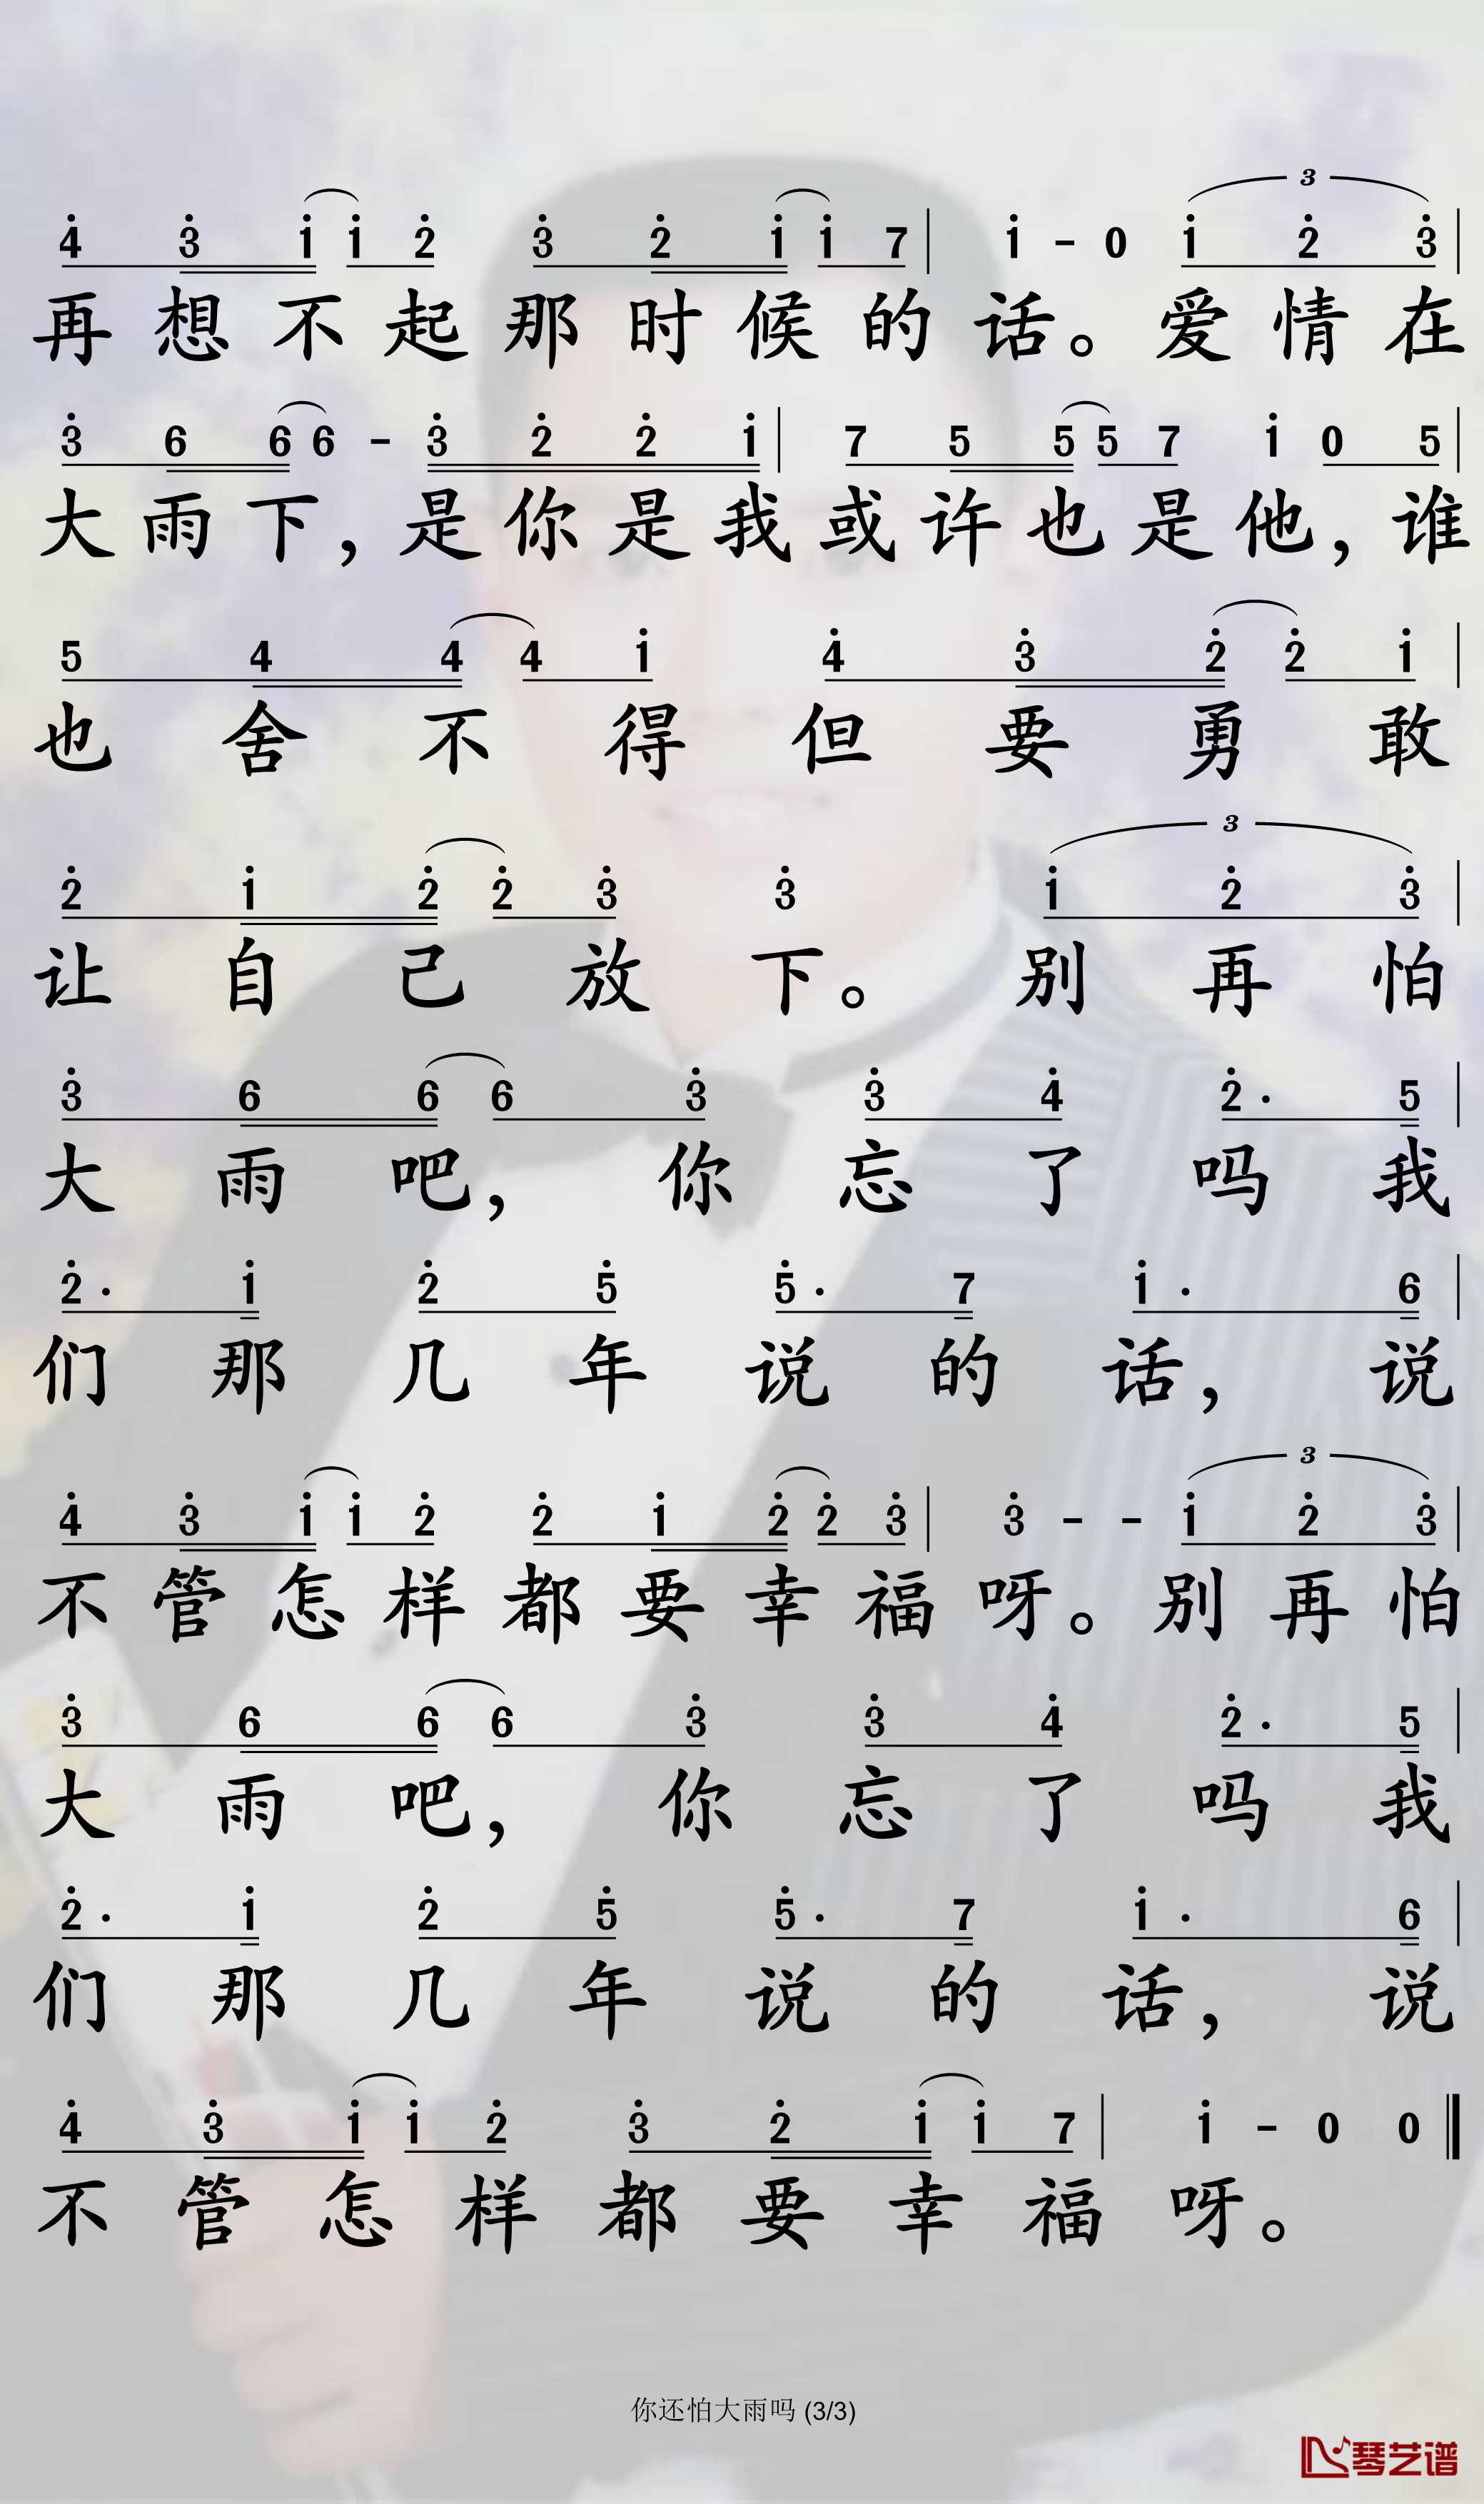 3
4 3 1 1 2 3 2 1 1 7 | 1 - 0 1 2 3 |
再想不起那时候的话。爱情在
3 6 6 6 - 3 2 2 1 | 7 5 5 5 7 1 0 5 |
大雨下，是你是我或许也是他，谁
5 4 4 4 1 4 3 2 2 1 |
也舍不得但要勇敢
3
2 1 2 2 3 3 1 2 3 |
让自己放下。别再怕
3 6 6 6 3 3 4 2· 5 |
大雨吧，你忘了吗我
2· 1 2 5 5· 7 1· 6 |
们那几年说的话，说
3
4 3 1 1 2 2 1 2 2 3 | 3 - - 1 2 3 |
不管怎样都要幸福呀。别再怕
3 6 6 6 3 3 4 2· 5 |
大雨吧，你忘了吗我
2· 1 2 5 5· 7 1· 6 |
们那几年说的话，说
4 3 1 1 2 3 2 1 1 7 | 1 - 0 0
不管怎样都要幸福呀。
你还怕大雨吗 (3/3)
琴艺谱